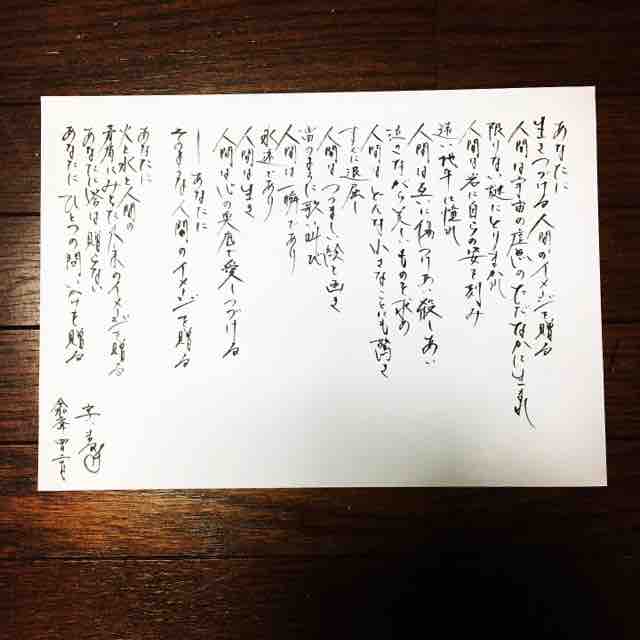 あなたに
生きつづける人間のイメージを贈る
人間は宇宙の虚無のただなかに生まれ
限りない謎にとりまかれ
人間は岩に自らの姿を刻み
遠い地平に憧れ
人間は互いに傷つけあい殺しあい
泣きながら美しいものを求め
人間はどんな小さなことにも驚き
すぐに退屈し
人間はつつましい絵を画き
雷のように歌い叫び
人間は一瞬であり
永遠であり
人間は生き
人間は心の奥底で愛しつづける
―あなたに
そのような人間のイメージを贈る
あなたに
火と水と人間の
矛盾にみちた未来のイメージを贈る
あなたに答は贈らない
あなたに ひとつの問いかけを贈る